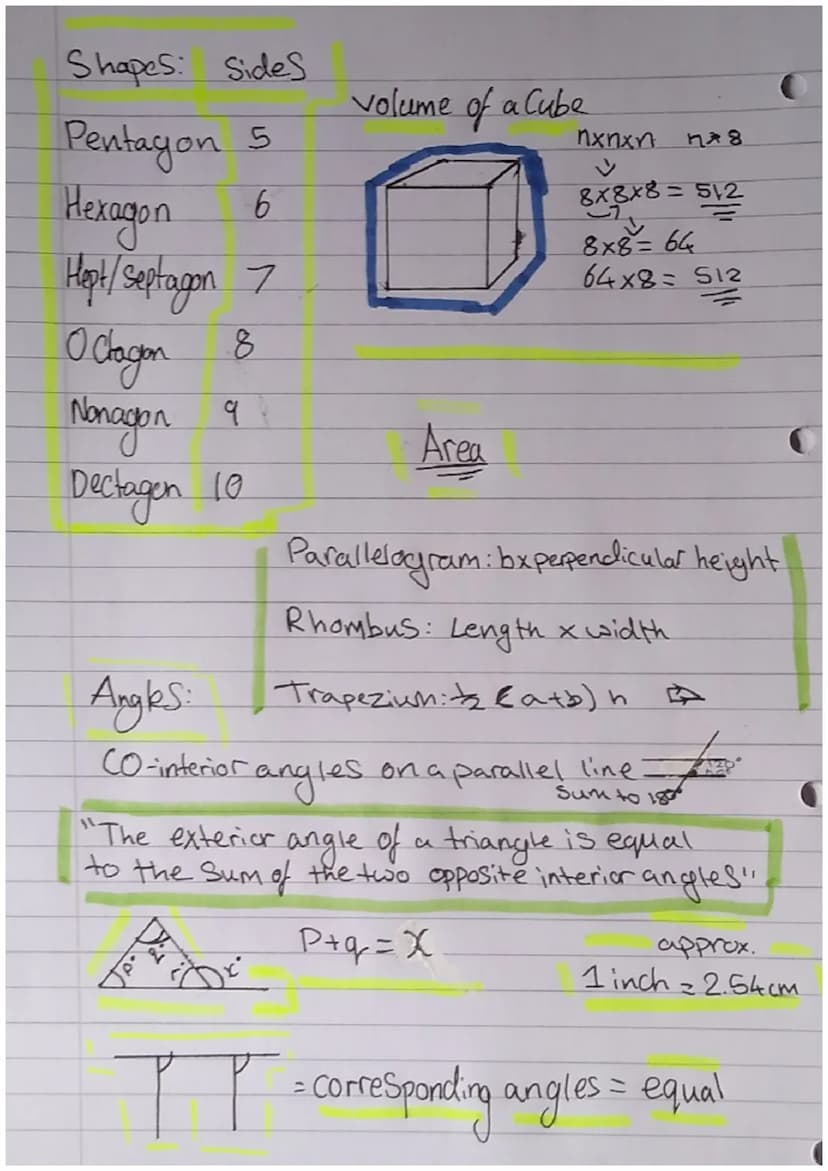 Shapes: Sides
Pentagon 5
Hexagon 6
Hept/Septagon 7
Octagon 8
Nonagon 9
Dectagon 10
Volume of a Cube
nxnxn n*8
8x8x8 = 512
8x8 = 64
64x8 = 512
Area
Parallelogram: bxperpendicular height
Rhombus: Length x width
Trapezium: ½ (a+b) h
Angles:
CO-interior angles on a parallel line
Sum to 180°
"The exterior angle of a triangle is equal
to the Sum of the two opposite interior angles"
p° q° r° x°
P+q = x
approx.
1 inch = 2.54cm
= corresponding angles = equal